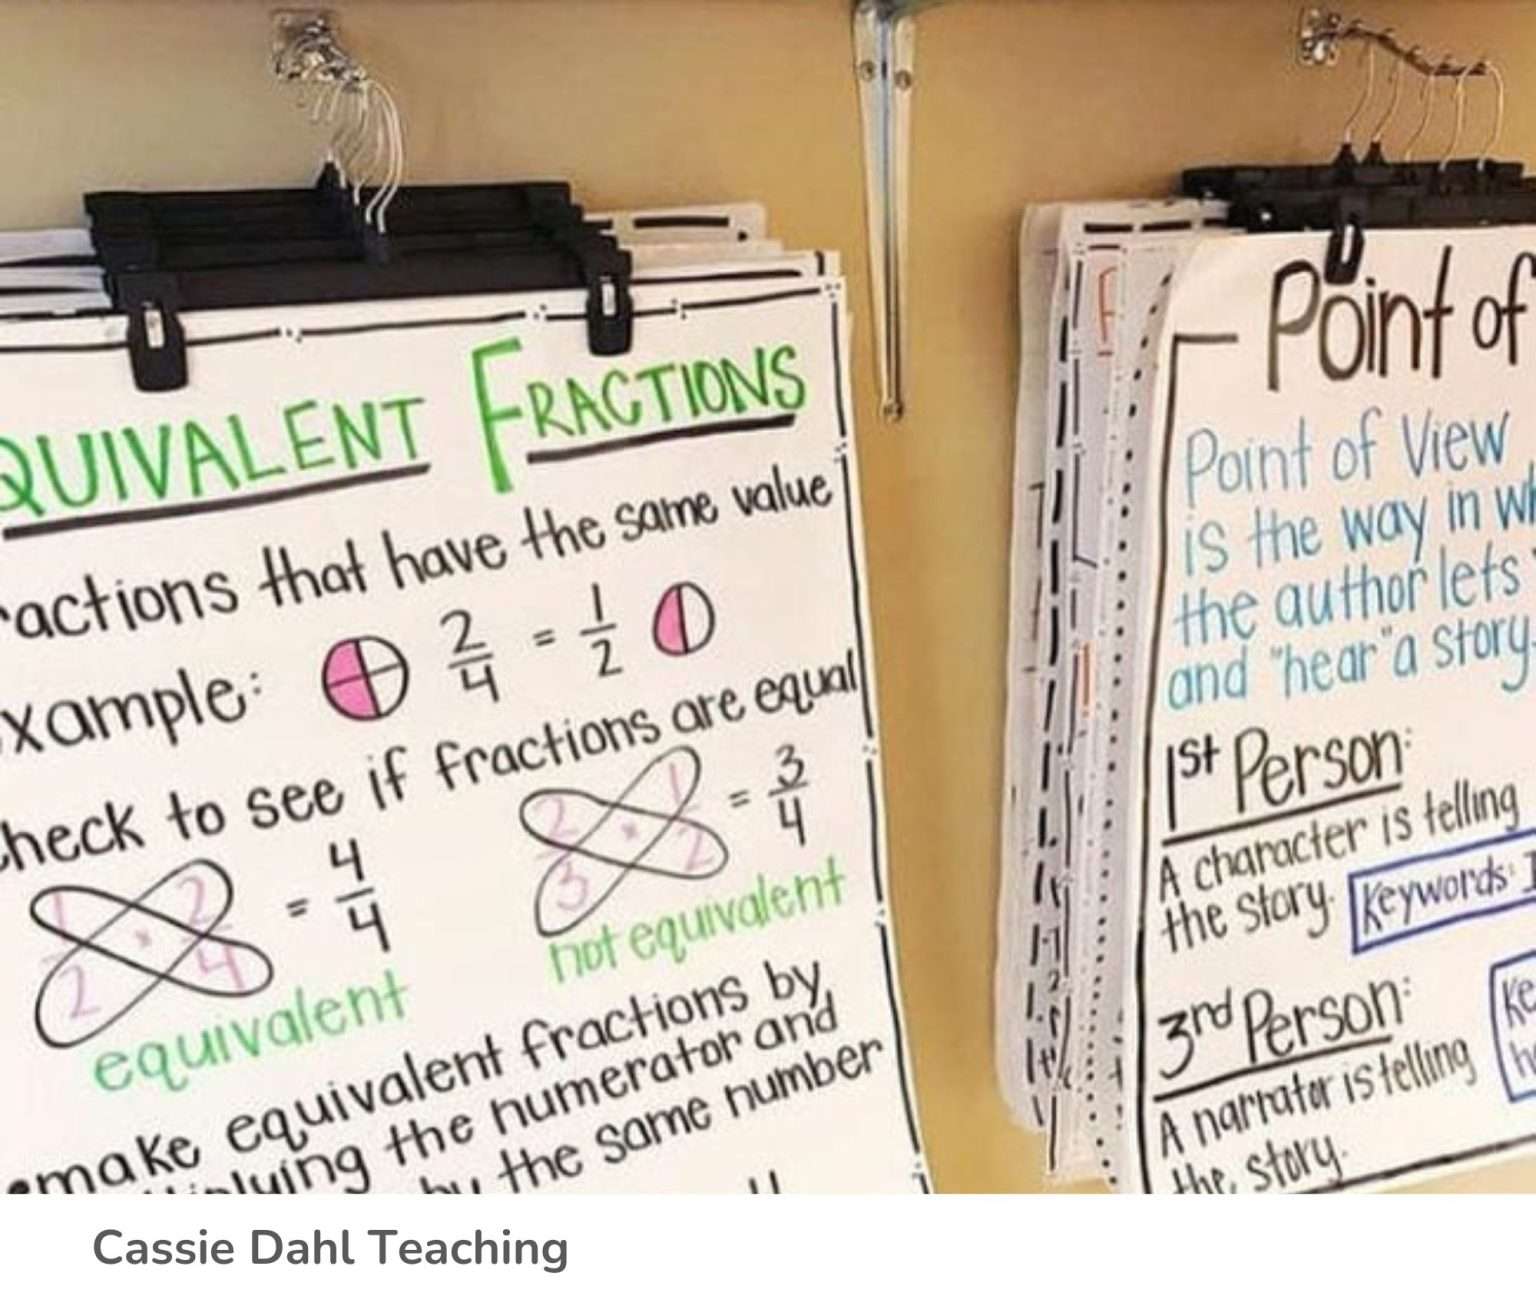 QUIVALENT FRACTIONS
ractions that have the same value
xample: 2/4 = 1/2
check to see if fractions are equal
1/2 × 2/4 = 4/4
equivalent
2/3 × 1/2 = 3/4
not equivalent
make equivalent fractions by
the numerator and
the same number
Point of
Point of View
is the way in wh
the author lets
and "hear" a story.
1st Person:
A character is telling
the story.
Keywords: I
3rd Person:
A narrator is telling
the story.
Ke
he
Cassie Dahl Teaching